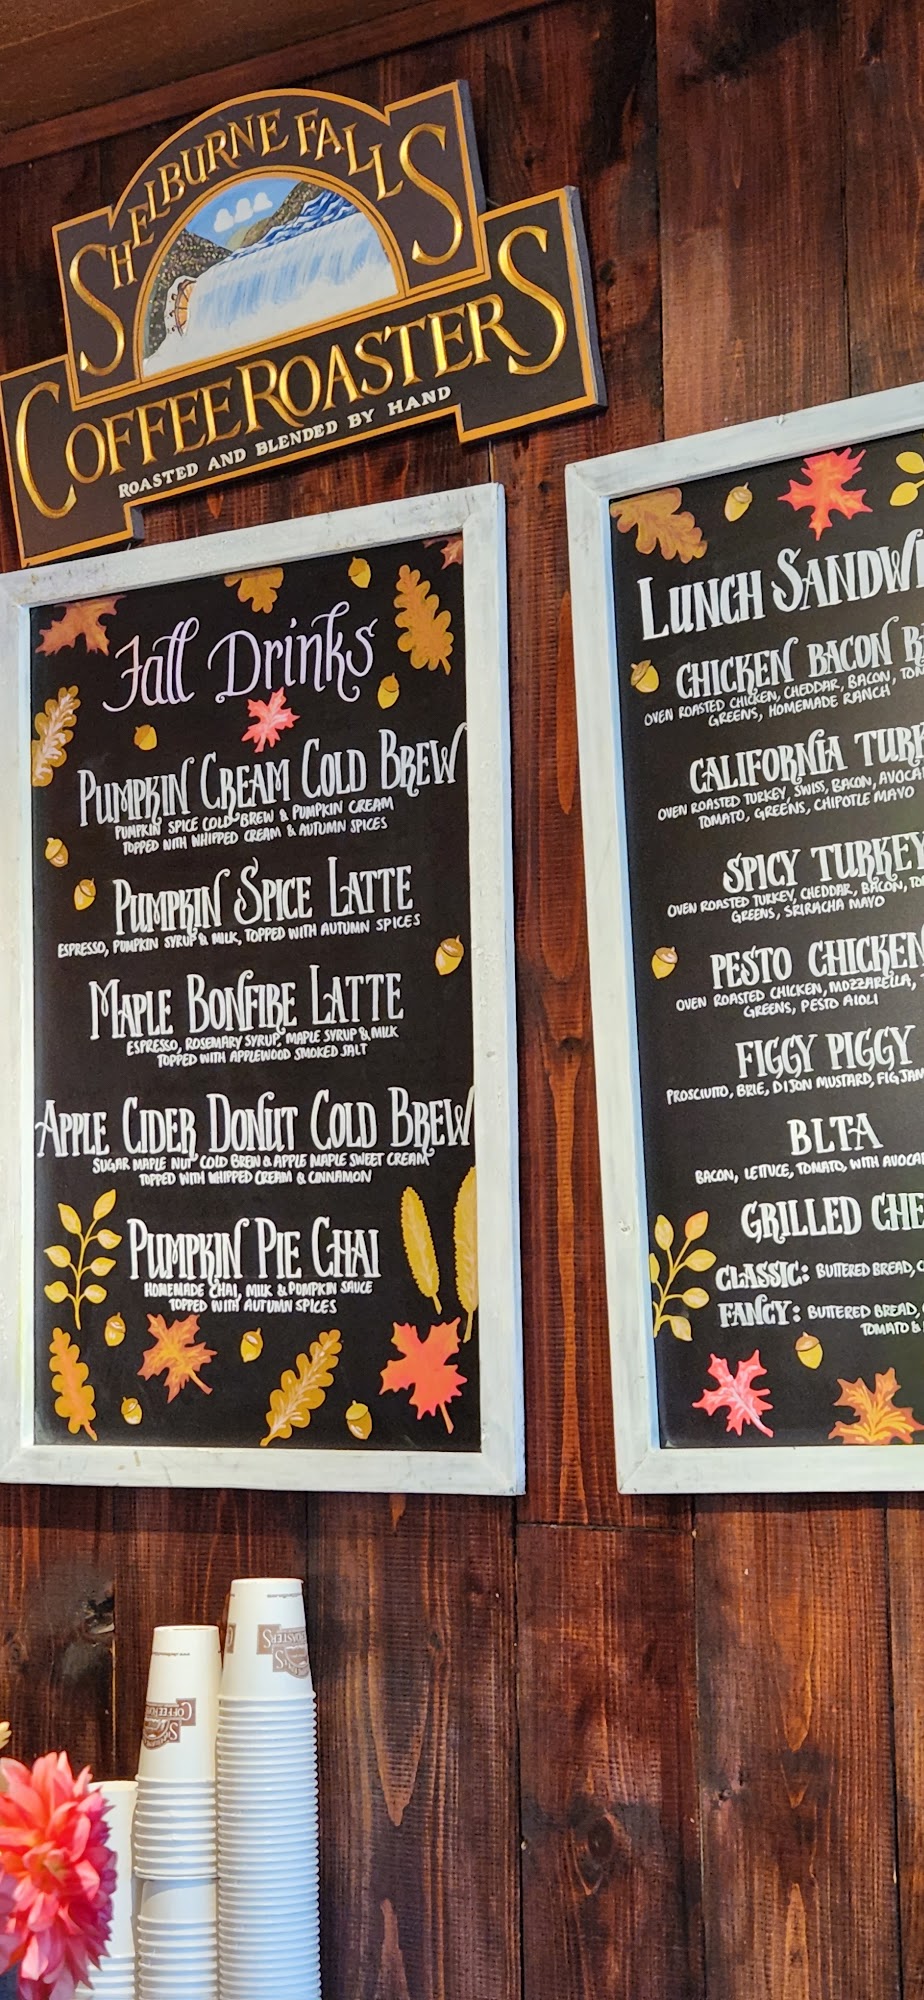 SHELBURNE FALLS
COFFEE ROASTERS
ROASTED AND BLENDED BY HAND
Fall Drinks
PUMPKIN CREAM COLD BREW
PUMPKIN SPICE COLD BREW & PUMPKIN CREAM
TOPPED WITH WHIPPED CREAM & AUTUMN SPICES
PUMPKIN SPICE LATTE
ESPRESSO, PUMPKIN SYRUP & MILK, TOPPED WITH AUTUMN SPICES
MAPLE BONFIRE LATTE
ESPRESSO, ROSEMARY SYRUP, MAPLE SYRUP & MILK
TOPPED WITH APPLEWOOD SMOKED SALT
APPLE CIDER DONUT COLD BREW
SUGAR MAPLE NUT COLD BREW & APPLE MAPLE SWEET CREAM
TOPPED WITH WHIPPED CREAM & CINNAMON
PUMPKIN PIE CHAI
HOMEMADE CHAI, MILK & PUMPKIN SAUCE
TOPPED WITH AUTUMN SPICES
LUNCH
CHICKEN BACON
OVEN ROASTED CHICKEN, CHEDDAR, BACON,
GREENS, HOMEMADE RANCH
CALIFORNIA
OVEN ROASTED TURKEY, SWISS, BACON,
TOMATO, GREENS, CHIPOTLE MAYO
SPICY TURKEY
OVEN ROASTED TURKEY, CHEDDAR, BACON,
GREENS, SRIRACHA MAYO
PESTO CHICKEN
OVEN ROASTED CHICKEN, MOZZARELLA,
GREENS, PESTO AIOLI
FIGGY PIGGY
PROSCIUTTO, BRIE, DIJON MUSTARD, FIG JAM
BLTA
BACON, LETTUCE, TOMATO, WITH
GRILLED
CLASSIC: BUTTERED BREAD,
FANCY: BUTTERED BREAD,
TOMATO &